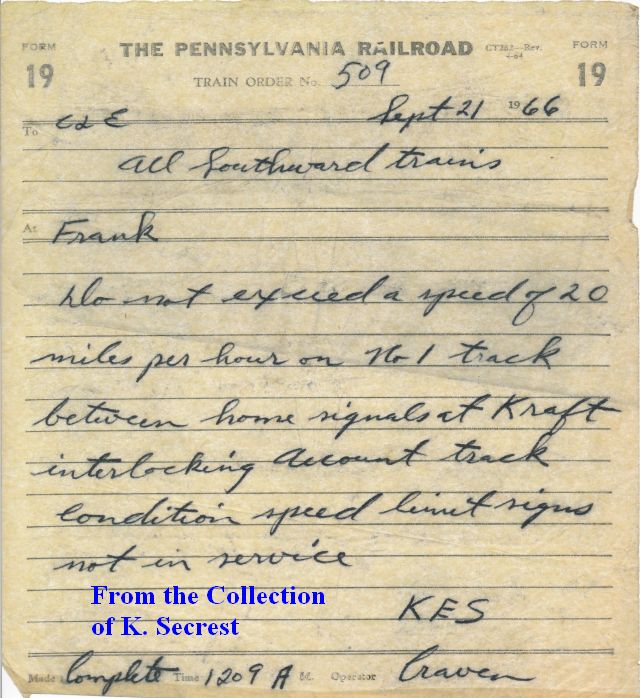 FORM THE PENNSYLVANIA RAILROAD CT282—Rev. FORM
19 TRAIN ORDER No. 509 4-64 19
Sept 21 1966
To C&E
All Southward trains
At Frank
Do not exceed a speed of 20
miles per hour on No 1 track
between home signals at Kraft
interlocking account track
condition speed limit signs
not in service
From the Collection
of K. Secrest
KES
Made Complete Time 1209 A M. Operator Craven